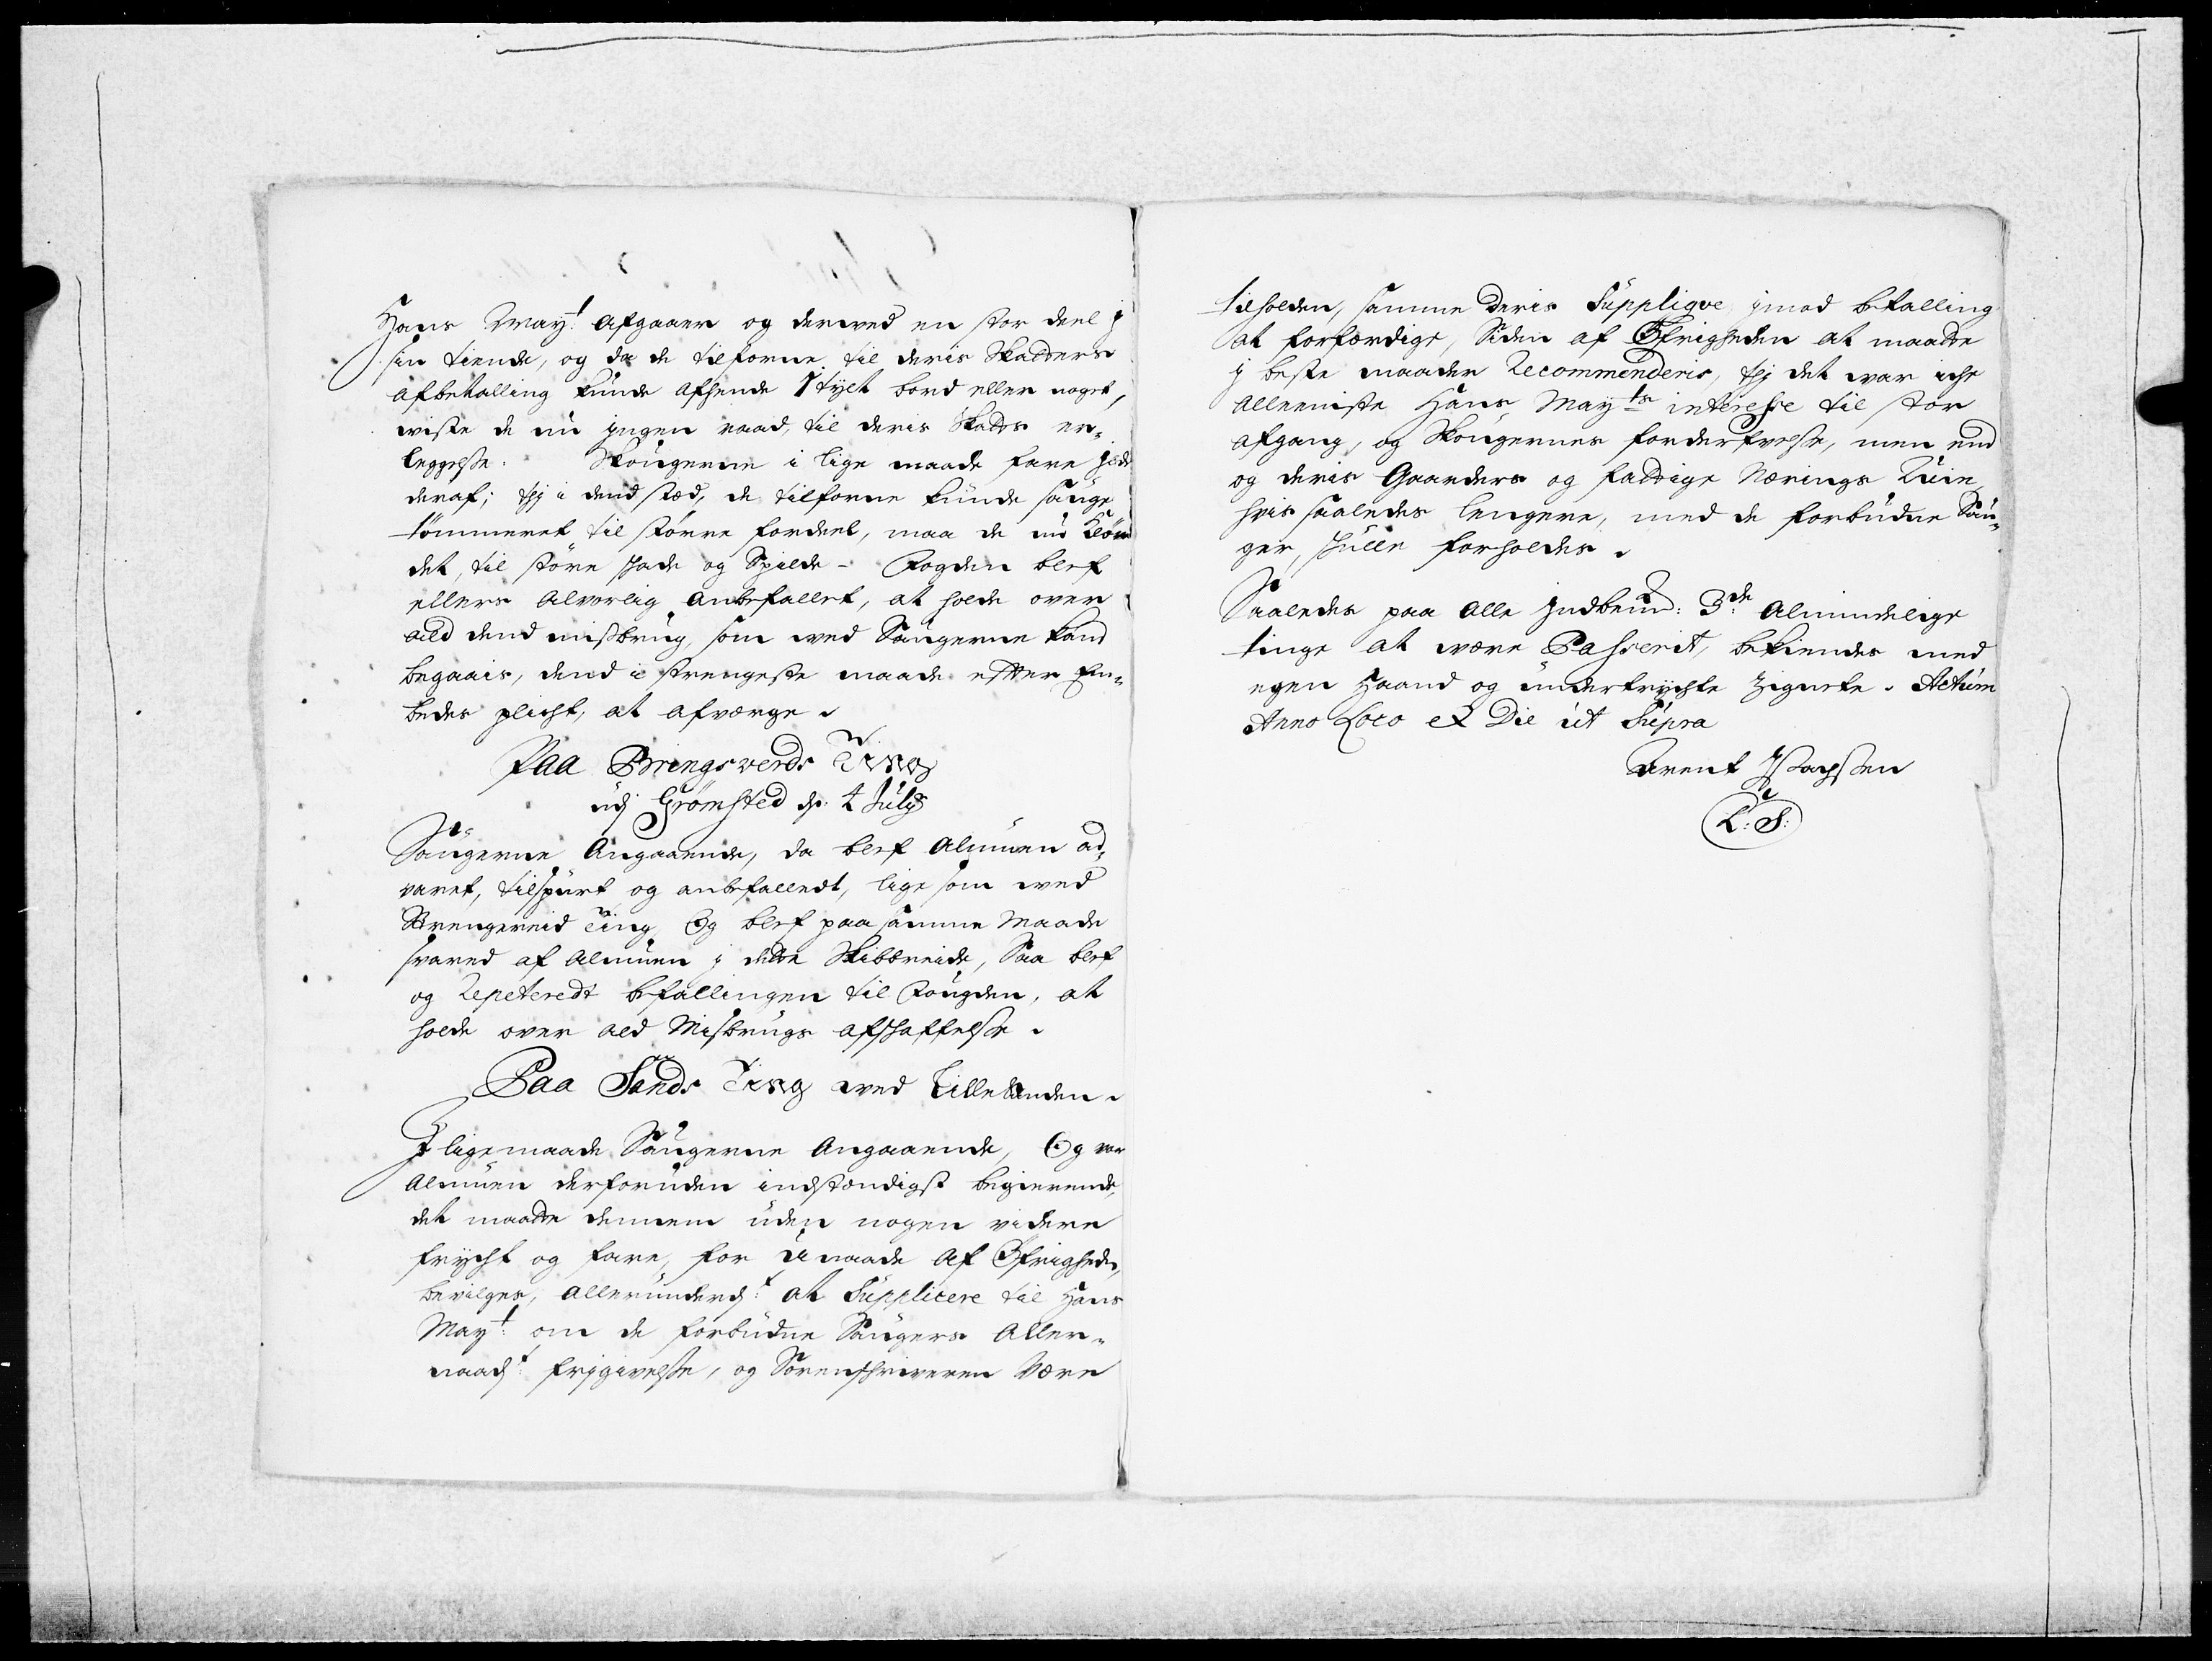 Hans May:t afgaaer og derved en stor deel i
sin tiende, og da de tilforne til deris Skatters
afbetalling kunde afhende 1 tylt bord eller noget,
viste de nu ingen raad, til deris Skatts er-
leggelse. Skougerne i lige maade fare ilde
deraf; thj i dend stæd, de tilforne kunde sauge
tømmeret til større fordeel, maa de nu kløve
det, til støre skade og Spilde - Fogden blef
ellers alvorlig anbefallet, at holde over
ald dend misbrug, som ved Saugerne kand
begaais, dend i strengeste maade efter Em-
bedes plicht, at afværge.
Paa Bringsverds Ting
udj Grømsted d: 4 July
Saugerne Angaaende, da blef Almuen ad-
varet, tilspurt og anbefalledt, lige som ved
Strengereid Ting, Og blef paa samme Maade
svared af Almuen i dette Skibbreide, Saa blef
og Repeteredt befallingen til Fougden, at
holde over ald Misbrugs afskaffelse.
Paa Sands Ting ved Lillesanden.
I lige maade Saugerne Angaaende, Og var
Almuen derforuden indstendigst begierende,
det maatte dennem uden nogen videre
frycht og fare, for Unaade af Øfrigheden,
bevilges, allerunderd:t at Supplicere til Hans
May:t om de forbudne Saugers Aller-
naad:t frigivelse, og Sorenskriveren Være
tilholden, samme deris Supplique imod betalling
at forfærdige, Siden af Øfrigheden at maatte
i beste maader Recommenderis, thj det var iche
alleeniste Hans May:ts interesse til stor
afgang, og Skougernes forderfvelse, men end
og deris Gaarders og fattige Nærings Ruin,
hvis saaledes lengere, med de forbudne Sau-
ger, skulle forholdes.
Saaledes paa alle indbem: 3de Almindelige
tinge at være Passerit, bekiendes med
egen Haand og undertrychte Zignete. Actum
Anno Loco et Die ut Supra
L: S: